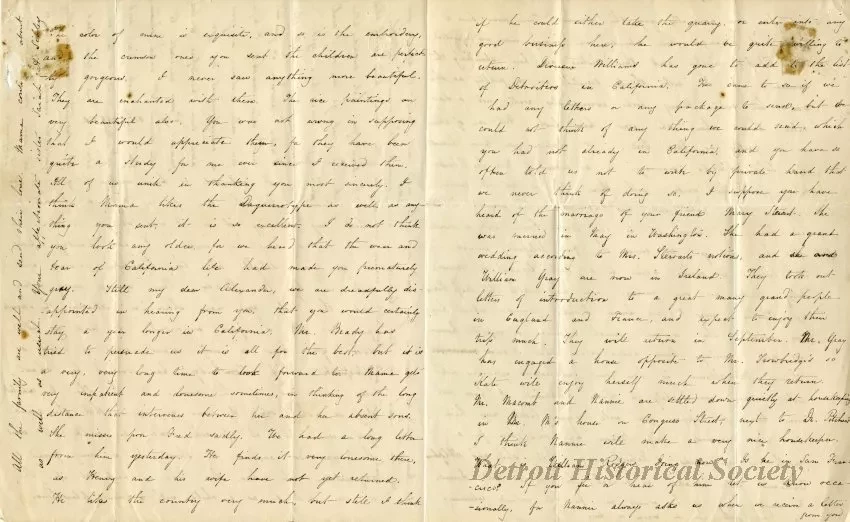 The color of mine is exquisite, and so is the embroidery,
and the crimson ones you sent the children are perfect-
-ly gorgeous. I never saw anything more beautiful.
They are enchanted with them. The rice paintings are
very beautiful also. You was not wrong in supposing
that I would appreciate them, for they have been
quite a study for me ever since I received them.
All of us unite in thanking you most sincerely. I
think Mama likes the Daguerreotype as well as any-
thing you sent, it is so excellent. I do not think
you look any older, for we heard that the wear and
tear of California life had made you prematurely
gray. Still my dear Alexander, we are dreadfully dis-
appointed in hearing from you, that you would certainly
stay a year longer in California. Mr. Brady has
tried to persuade us it is all for the best, but it is
a very, very long time to look forward to. Mama gets
very impatient and lonesome sometimes, in thinking of the long
distance that intervenes between her and her absent sons.
She misses poor Fred sadly. We had a long letter
from him yesterday. He finds it very lonesome there,
as Henry and his wife have not yet returned.
He likes the country very much, but still I think
All the family are well and send their love. Mama coris about
as well as usual. Your affectionate sister Sarah
if he could either take the quarry, or enter into any
good business here, he would be quite willing to
return. Williams has gone to add to the list
of Detroiters in California. He came to see if we
had any letters or any package to send, but we
could not think of any thing we could send, which
you had not already in California, and you have so
often told us not to write by private hand that
we never think of doing so. I suppose you have
heard of the marriage of your friend Mary Stuart. She
was married in May in Washington. She had a grand
wedding according to Mrs. Stewart's notions, and she and
William Gray are now in Ireland. They took out
letters of introduction to a great many grand people
in England and France, and expect to enjoy their
trip much. They will return in September. Mr. Gray
has engaged a house opposite to Mr. Trowbridge's so
Kate will enjoy herself much when they return.
Mr. Macomb and Nannie are settled down quietly at housekeeping
in Mr. M's house on Congress Street, next to Dr. Pitcher's
I think Nannie will make a very nice housekeeper.
to be in San Fran-
-cisco. If you see or hear of him let us know occa-
-sionally, for Nannie always asks us when we receive a letter
from you
Detroit Historical Society